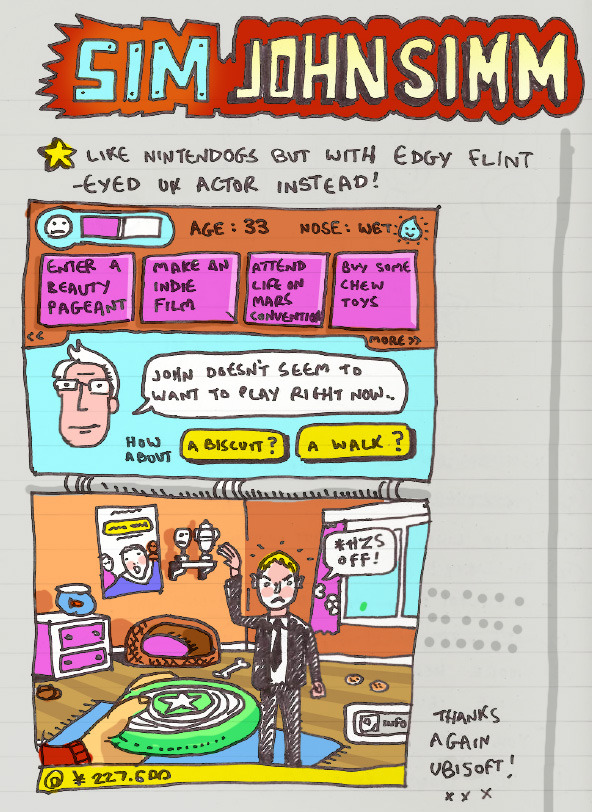 SIM JOHN SIMM
LIKE NINTENDOGS BUT WITH EDGY FLINT
-EYED UK ACTOR INSTEAD!
AGE: 33 NOSE: WET
ENTER A
BEAUTY
PAGEANT
MAKE AN
INDIE
FILM
ATTEND
LIFE ON
MARS
CONVENTION
BUY SOME
CHEW
TOYS
<< MORE >>
JOHN DOESN'T SEEM TO
WANT TO PLAY RIGHT NOW..
HOW
ABOUT
A BISCUIT?
A WALK?
OFF!
INFO
THANKS
AGAIN
UBISOFT!
x x x